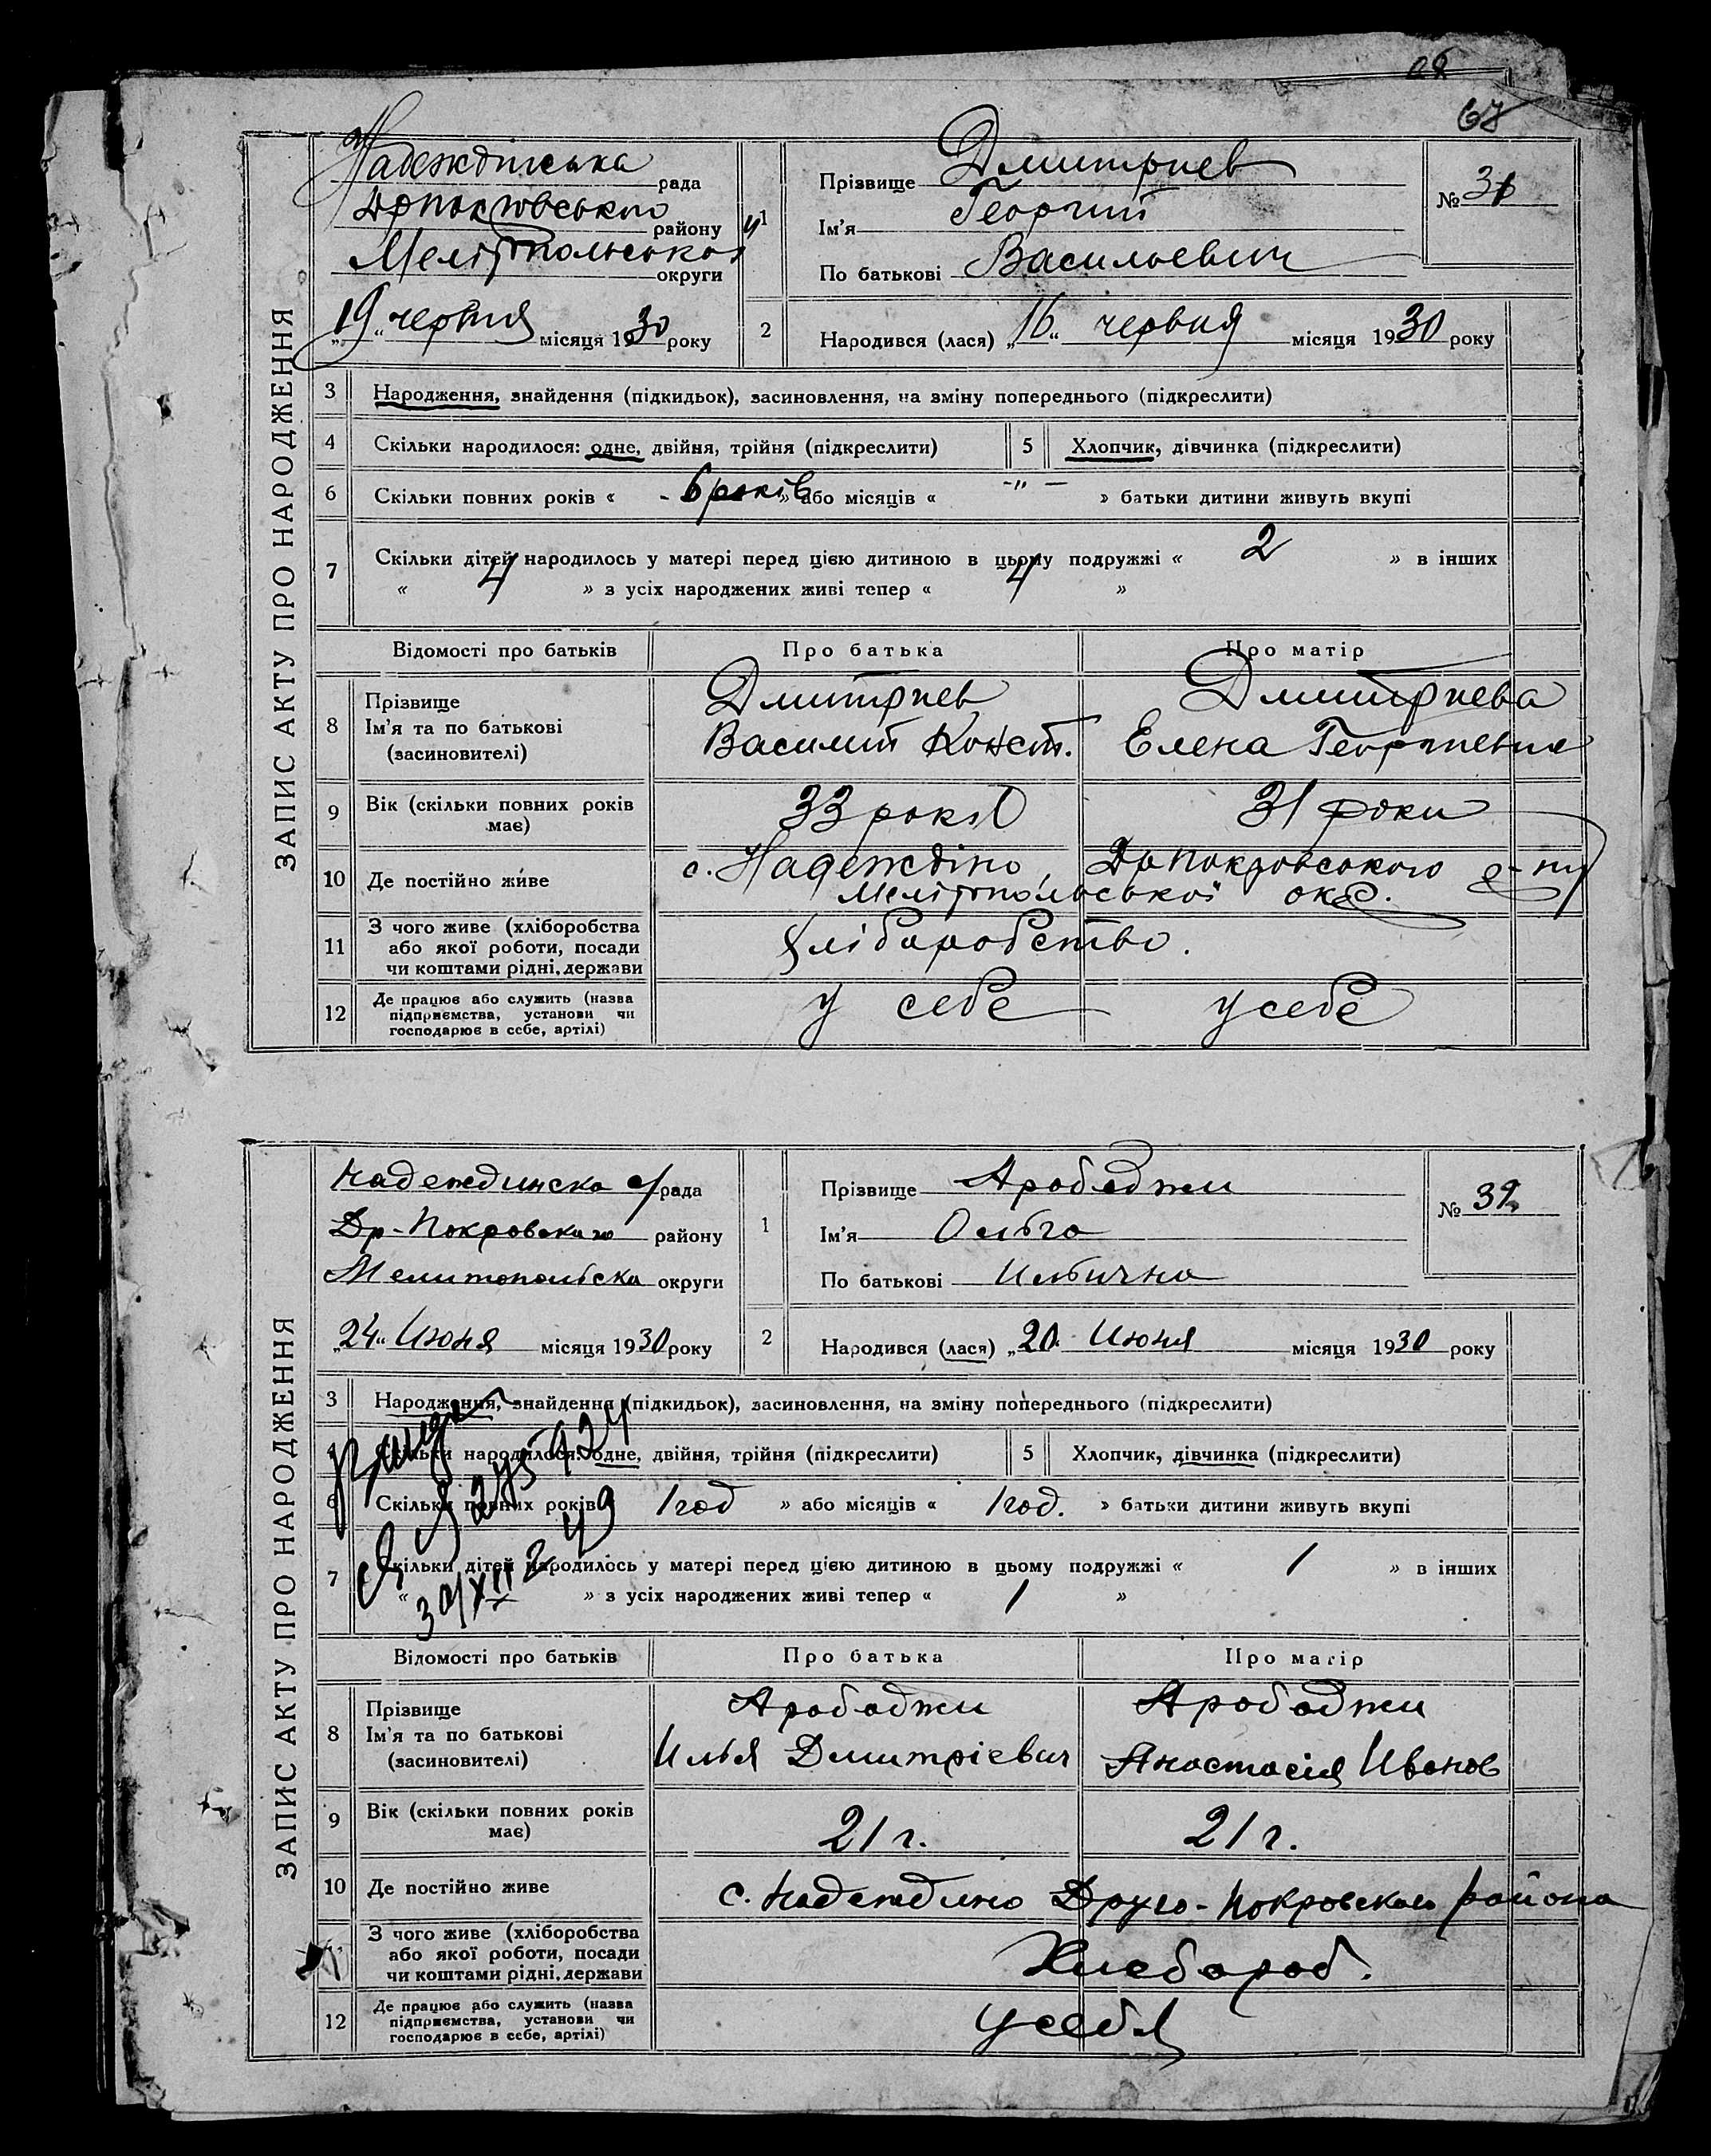 68
67
ЗАПИС АКТУ ПРО НАРОДЖЕННЯ
Надеждінська рада
Дрпокровського району
Мелітопольської округи
„19“ червня місяця 1930 року
1
Прізвище Дмитриев
Ім'я Георгий
По батькові Васильевич
№ 31
2
Народився (лася) „16“ червня місяця 1930 року
3 Народження, знайдення (підкидьок), засиновлення, на зміну попереднього (підкреслити)
4 Скільки народилося: одне, двійня, трійня (підкреслити) 5 Хлопчик, дівчинка (підкреслити)
6 Скільки повних років « - 6 років » або місяців « -"- » батьки дитини живуть вкупі
7 Скільки дітей народилось у матері перед цією дитиною в цьому подружжі « 2 » в інших
« 4 » з усіх народжених живі тепер « 4 »
Відомості про батьків Про батька Про матір
8 Прізвище
Ім'я та по батькові
(засиновителі)
Дмитриев
Василий Конст.
Дмитриева
Елена Георгиевна
9 Вік (скільки повних років
має)
33 років 31 роки
10 Де постійно живе
с. Надеждіно, Дрпокровського р-ну
Мелітопольської окр.
11 З чого живе (хліборобства
або якої роботи, посади
чи коштами рідні, держави
хліборобство.
12 Де працює або служить (назва
підприємства, установи чи
господарює в себе, артілі)
у себе у себе
ЗАПИС АКТУ ПРО НАРОДЖЕННЯ
Надеждинска с/рада
Др-Покровского району
Мелитопольска округи
„24“ Июня місяця 1930 року
1
Прізвище Арабаджи
Ім'я Ольга
По батькові Ильична
№ 32
2
Народився (лася) „20“ Июня місяця 1930 року
3 Народження, знайдення (підкидьок), засиновлення, на зміну попереднього (підкреслити)
4 Скільки народилося: одне, двійня, трійня (підкреслити) 5 Хлопчик, дівчинка (підкреслити)
6 Скільки повних років « 1 год » або місяців « 1 год. » батьки дитини живуть вкупі
7 Скільки дітей народилось у матері перед цією дитиною в цьому подружжі « 1 » в інших
« » з усіх народжених живі тепер « 1 »
Відомості про батьків Про батька Про матір
8 Прізвище
Ім'я та по батькові
(засиновителі)
Арабаджи
Илья Дмитріевич
Арабаджи
Анастасія Иванов
9 Вік (скільки повних років
має)
21 г. 21 г.
10 Де постійно живе
с. Надеждино Друго-Покровского района
З чого живе (хліборобства
або якої роботи, посади
чи коштами рідні, держави
Хлебороб.
12 Де працює або служить (назва
підприємства, установи чи
господарює в себе, артілі)
у себя